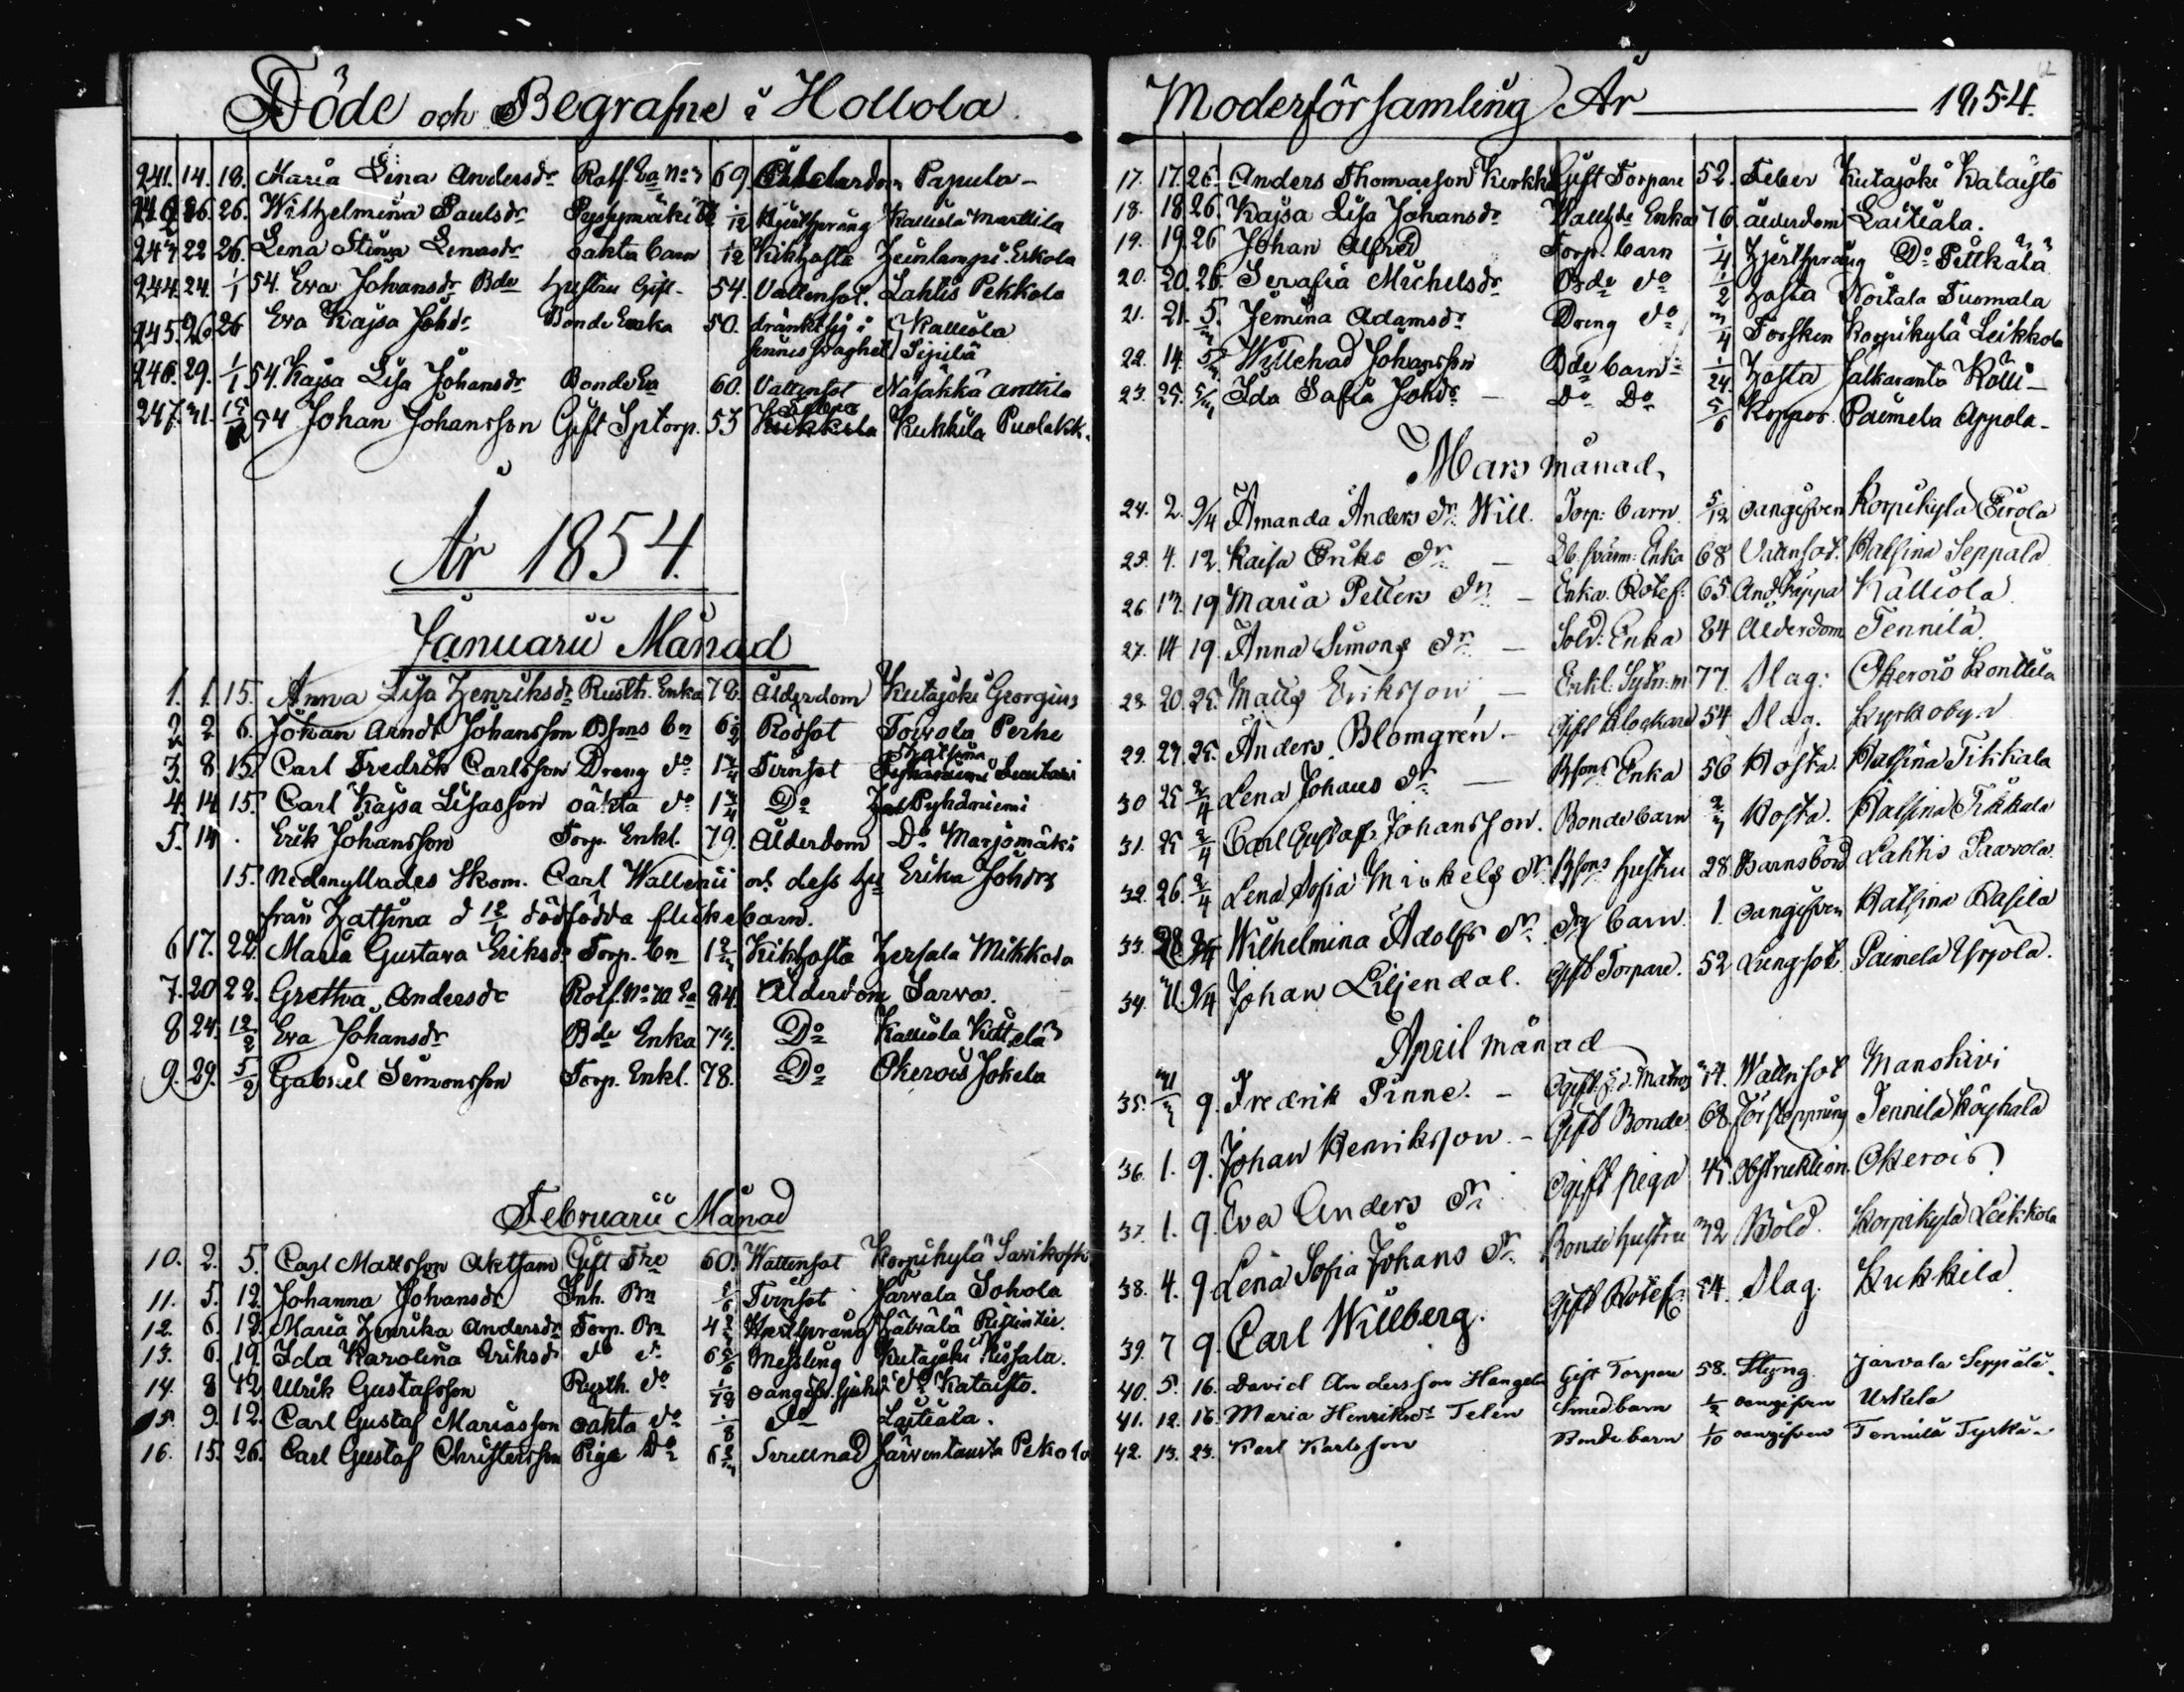 Döde och Begrafne i Hollola
241. 14. 18. Maria Lina Andersdr Rotf. Ea No 69 Ålderdom Papula -
242 26 26. Wilhelmina Paulsdr 1/12 Hjertsprång Kalliola Marttila
243 22 26. Lena Stina Lenasdr oäkta barn 1/12 Kikhosta Heinlampi Erkola
244. 24. 1/1 54. Eva Johansdr Bde hustru Gift. 54. Vattensot. Lahtis Pekkola
245. 26 26 Eva Kajsa Johdr Bonde Enka 50. dränkt sig i Kalliola
sinnes svaghet Sipilä
246. 29. 1/1 54. Kajsa Lisa Johansdr Bonde Ea 60. Vattensot Nasakka Anttila
247. 31. 15/1 54 Johan Johansson Gift Sptorp. 53 Kukkila Puolakk.
År 1854.
Januarii Månad
1. 1. 15. Anna Lisa Henriksdr Rusth. Enka 78 Ålderdom Kutajoki Georgius
2 2 6. Johan Arndt Johansson Bsons bn 6 1/2 Rödsot Torvola Perhe
3. 8 15. Carl Fredrik Carlsson Dreng do 1 3/4 Tvinsot Hatsina
4. 14 15. Carl Kajsa Lisasson oäkta do 1 3/4 Do Pyhäniemi
5. 14 . Erik Johansson Torp. Enkl. 79. Ålderdom Do Marjomäki
15. Nedmyllades Skom. Carl Wallenii och dess hu Erika Johdrs
från Hatsina d 12/1 dödfödda flickebarn.
6 17. 22. Maria Gustava Eriksdr Torp. bn 1 2/3 Kikhosta Hersala Mikkola
7. 20 22. Gretha Andersdr Rotf. No Ea 84. Ålderdom Jarva.
8 24. 12/2 Eva Johansdr Bde Enka 73. Do Kalliola Kittelä
9. 29. 5/2 Gabriel Simonsson Torp. Enkl. 78. Do Okerois Jokela
Februarii Månad
10. 2. 5. Carl Mattsson Gift 60. Wattensot Korpikylä Savikoski
11. 5. 12. Johanna Johansdr Inh. Bn 5/6 Tvinsot Järvala Sohola
12. 6. 12. Maria Henrika Andersdr Torp. Bn Hjertsprång Hälvälä
13. 6. 19. Ida Karolina Eriksdr do do 6 5/6 Messling Kutajoki Kissala.
14. 8 12 Ulrik Gustafsson Rusth. do 1/12 oangifv. sjukd do Kataisto.
15. 9. 12. Carl Gustaf Mariasson oäkta do 1/8 do Laitiala.
16. 15. 26. Carl Gustaf Christersson Piga Do 6 2/3 Strellnad Järventausta Pekola
Moderförsamling År 1854.
17. 17. 26. Anders Thomasson Kirkk Gift Torpare 52. Feber Kutajoki Kataisto
18. 18 26. Kajsa Lisa Johansdr Enka 76 ålderdom Laitiala.
19. 19. 26 Johan Alfred Torp. barn 1/4 Hjertsprång Do Pitkälä
20. 20. 26. Serafia Michelsdr Bde do 1/2 hosta Noitala Tuomala
21. 21. 5. Jemina Adamsdr Dreng do 3/4 Torsken Korpikylä Leikkola
22. 14. 5/3 Willehad Johansson Bde barn 1/24 hosta Jalkaranta Kolli -
23. 25. 5/3 Ida Safia Johdr - Do Do 5/6 Koppor Paimela Appola -
Mars månad.
24. 2. 9/4 Amanda Anders dr Will. Torp: barn 5/12 oangifven Korpikylä Eirola
25. 4. 12. Kaisa Eriks dr - Enka 68 Vattensot. Hatsina Seppälä
26 13. 19 Maria Petters dr - Enka. Rotef: 65. Andtäppa Kalliola
27. 14 19. Anna Simons dr - Sold: Enka 84 Ålderdom Tennilä
28. 20. 25. Matts Eriksson - Enkl. 77. Slag: Okerois Konttila
29. 23. 25. Anders Blomgrén. - Gift Klockare 54 Slag. Kyrkobyn
30 25 2/4 Lena Johans dr - Bsons Enka 56 Hosta. Hatsina Tikkala
31. 25 2/4 Carl Gustaf Johansson. Bonde barn 2/3 Hosta. Hatsina Tikkala
32. 26. 2/4 Lena Sofia Mickels dr Bsons hustru 28 Barnsbörd Lahtis Paavola.
33. 28 9/4 Wilhelmina Adolfs dr barn 1. oangifven Hatsina Rasila
34. 31 9/4 Johan Liljendal. Gift Torpare. 52 Lungsot Paimela Yrjola.
April månad
35. 31/3 9. Fredrik Pinne. - Ogift matros 34. Wattnsot Manskivi
36. 1. 9. Johan Henriksson - Gift Bonde 68. Förstoppning Tennilä Köyhälä
37. 1. 9. Eva Anders dr Ogift piga 45. Obstruktion. Okerois
38. 4. 9 Lena Sofia Johans dr Bonde hustru 32 Böld. Korpikylä Leikkola
39. 7 9. Carl Willberg. Gift Rotef: 54. Slag. Kukkila
40. 5. 16. David Andersson Hangela Gift Torpare 58. Styng. Järvala Seppälä.
41. 12. 16. Maria Henriksdr Telén Smedbarn 1/2 oangifven Urkela
42. 13. 23. Karl Karlsson Bondebarn 1/10 oangifven Tennilä Tyrkä.